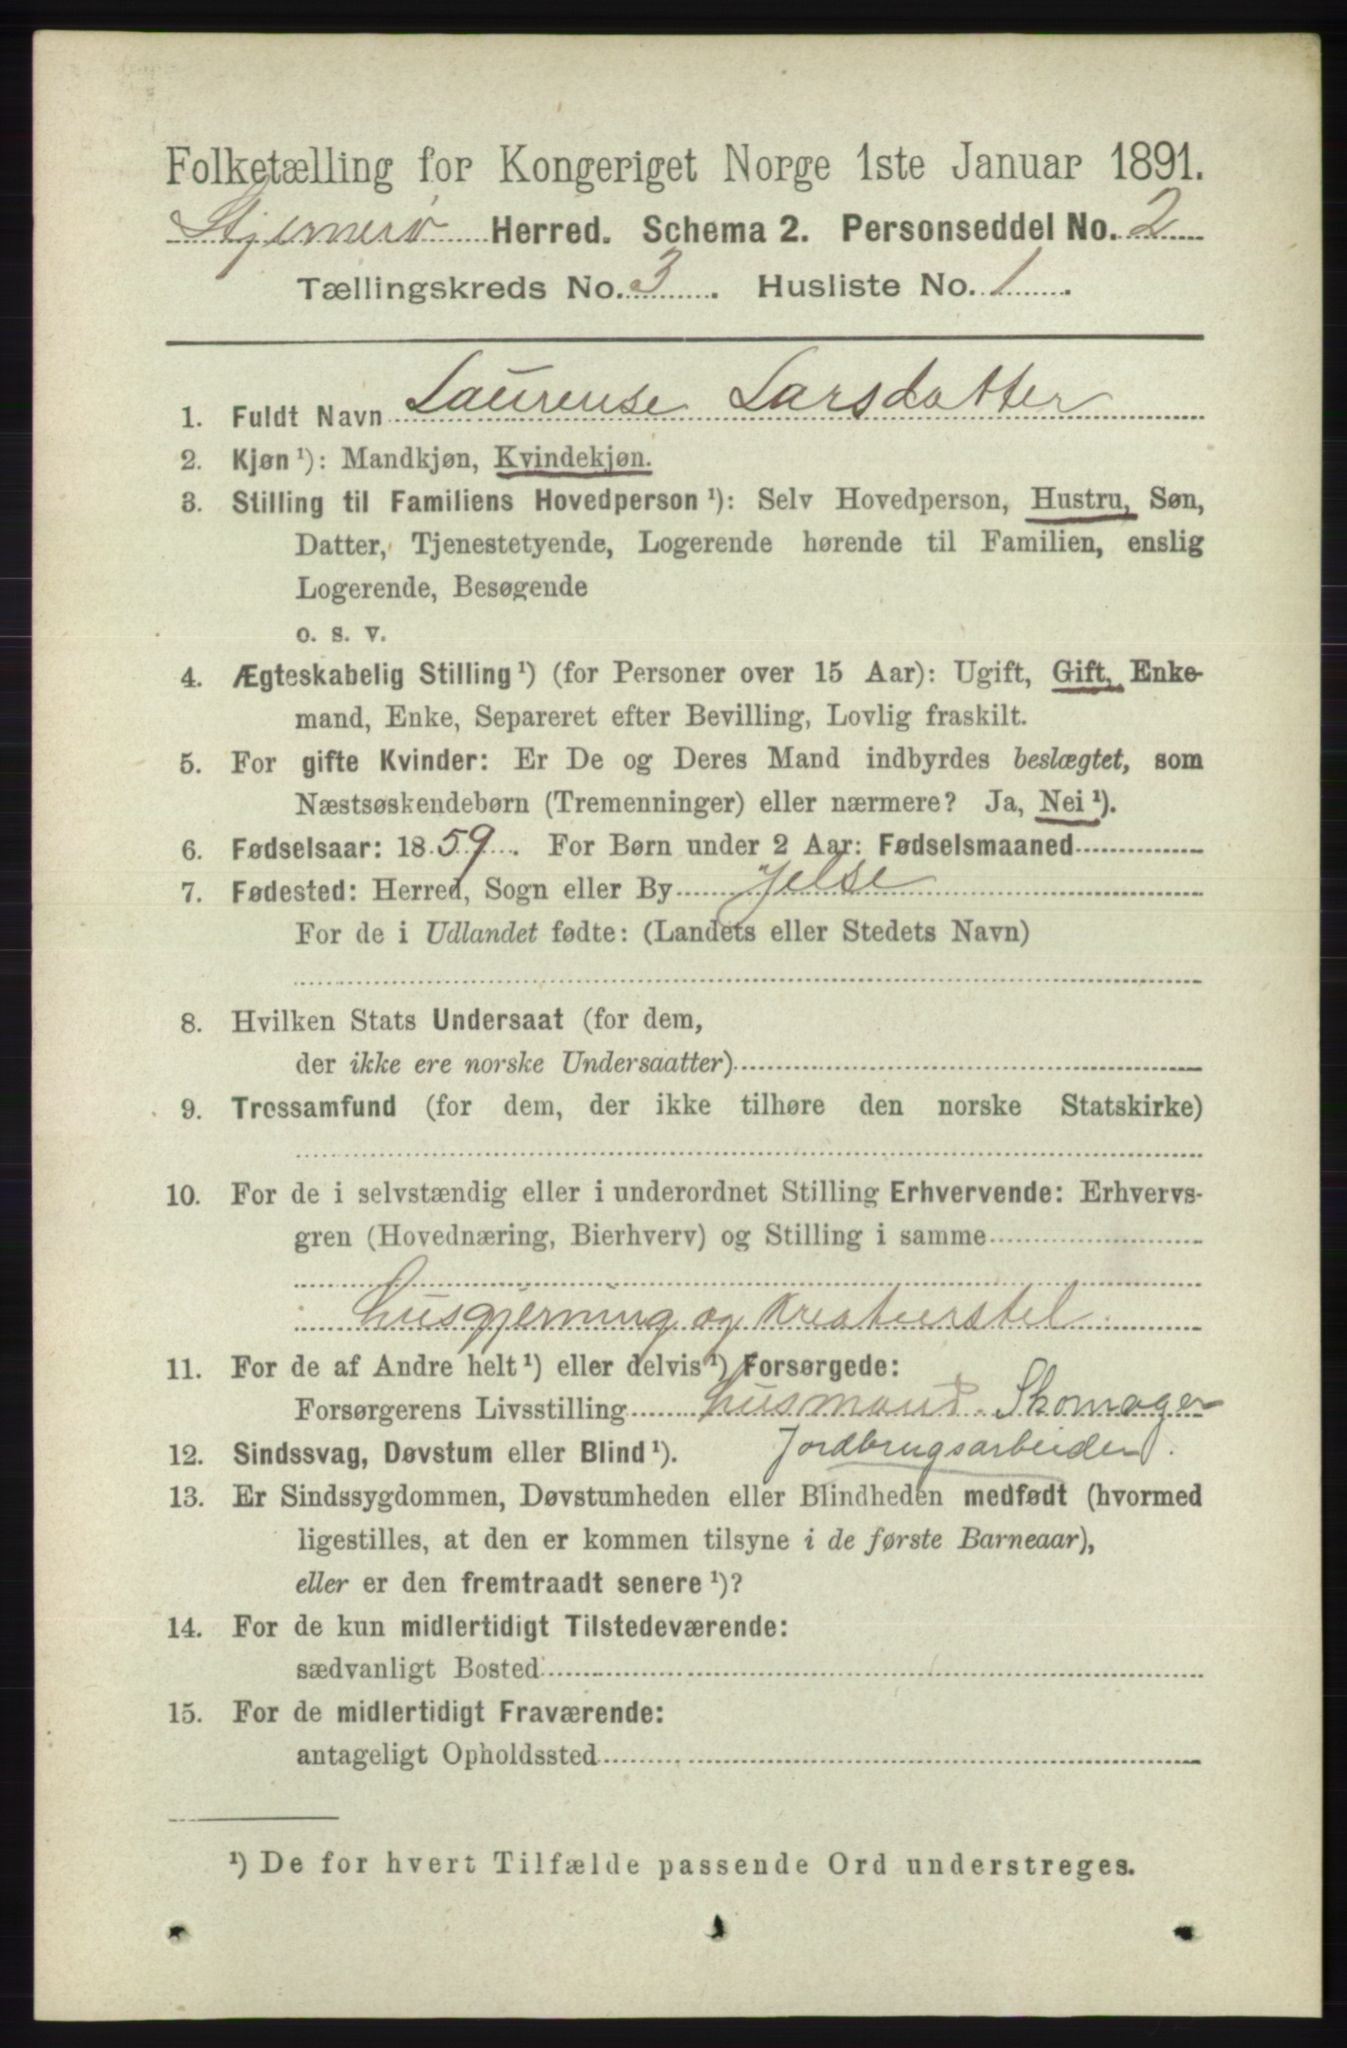 Folketælling for Kongeriget Norge 1ste Januar 1891.
Stjernerø Herred. Schema 2. Personseddel No. 2
Tællingskreds No. 3. Husliste No. 1.
1. Fuldt Navn Laurense Larsdatter
2. Kjøn ¹): Mandkjøn, Kvindekjøn.
3. Stilling til Familiens Hovedperson ¹): Selv Hovedperson, Hustru, Søn,
Datter, Tjenestetyende, Logerende hørende til Familien, enslig
Logerende, Besøgende
o. s. v.
4. Ægteskabelig Stilling ¹) (for Personer over 15 Aar): Ugift, Gift, Enke-
mand, Enke, Separeret efter Bevilling, Lovlig fraskilt.
5. For gifte Kvinder: Er De og Deres Mand indbyrdes beslægtet, som
Næstsøskendebørn (Tremenninger) eller nærmere? Ja, Nei ¹).
6. Fødselsaar: 1859. For Børn under 2 Aar: Fødselsmaaned
7. Fødested: Herred, Sogn eller By Jelse
For de i Udlandet fødte: (Landets eller Stedets Navn)
8. Hvilken Stats Undersaat (for dem,
der ikke ere norske Undersaatter)
9. Trossamfund (for dem, der ikke tilhøre den norske Statskirke)
10. For de i selvstændig eller i underordnet Stilling Erhvervende: Erhvervs-
gren (Hovednæring, Bierhverv) og Stilling i samme
husgjerning og Kreaturstel
11. For de af Andre helt ¹) eller delvis ¹) Forsørgede:
Forsørgerens Livsstilling husmand Skomager
Jordbrugsarbeider.
12. Sindssvag, Døvstum eller Blind ¹).
13. Er Sindssygdommen, Døvstumheden eller Blindheden medfødt (hvormed
ligestilles, at den er kommen tilsyne i de første Barneaar),
eller er den fremtraadt senere ¹)?
14. For de kun midlertidigt Tilstedeværende:
sædvanligt Bosted
15. For de midlertidigt Fraværende:
antageligt Opholdssted
¹) De for hvert Tilfælde passende Ord understreges.